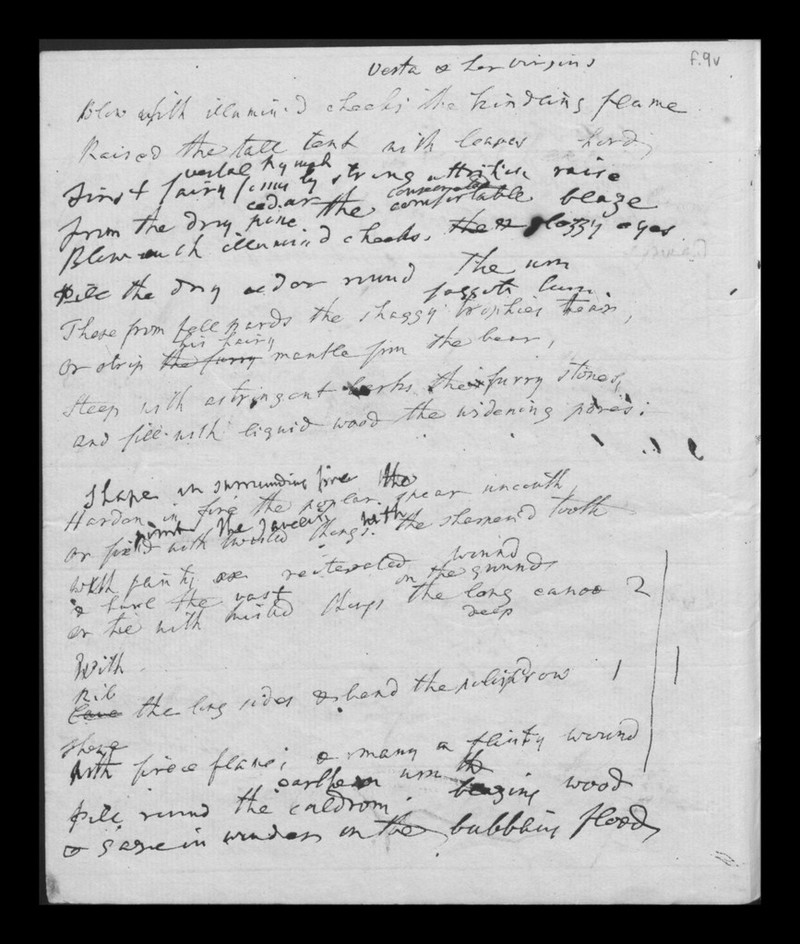 f.9v
Vesta & her virgins
Blow with illumin'd cheeks the kindling flame
Raised the tall tent with leaves
vestal Nymph
First fairy forms by strong attrition raise
cedar consecrated
From the dry pine the comfortable blaze
Blow with illumin'd cheeks, the glossy eyes
Pile the dry cedar round the urn
faggots burn.
These from fell pards the shaggy trophies tear,
his hairy
Or strip the furry mantle from the bear,
Steep with astringent herbs their furry stores,
and fill with liquid wood the widening pores;
Shape in surrounding fire the
Harden in fire the poplar spear uncouth,
point the javelin with
Or with twisted thongs the sharpen'd tooth
With reiterated wound
& the vast on the ground
or tie with twisted thongs the long canoe 2
deep
With
Rib
Cave the long sides & bend the prow 1 1
shape
With fierce flame; & many a flinty wound
earthen urn the
Pile round the caldron blazing wood
& gaze in wonder on the bubbling flood,